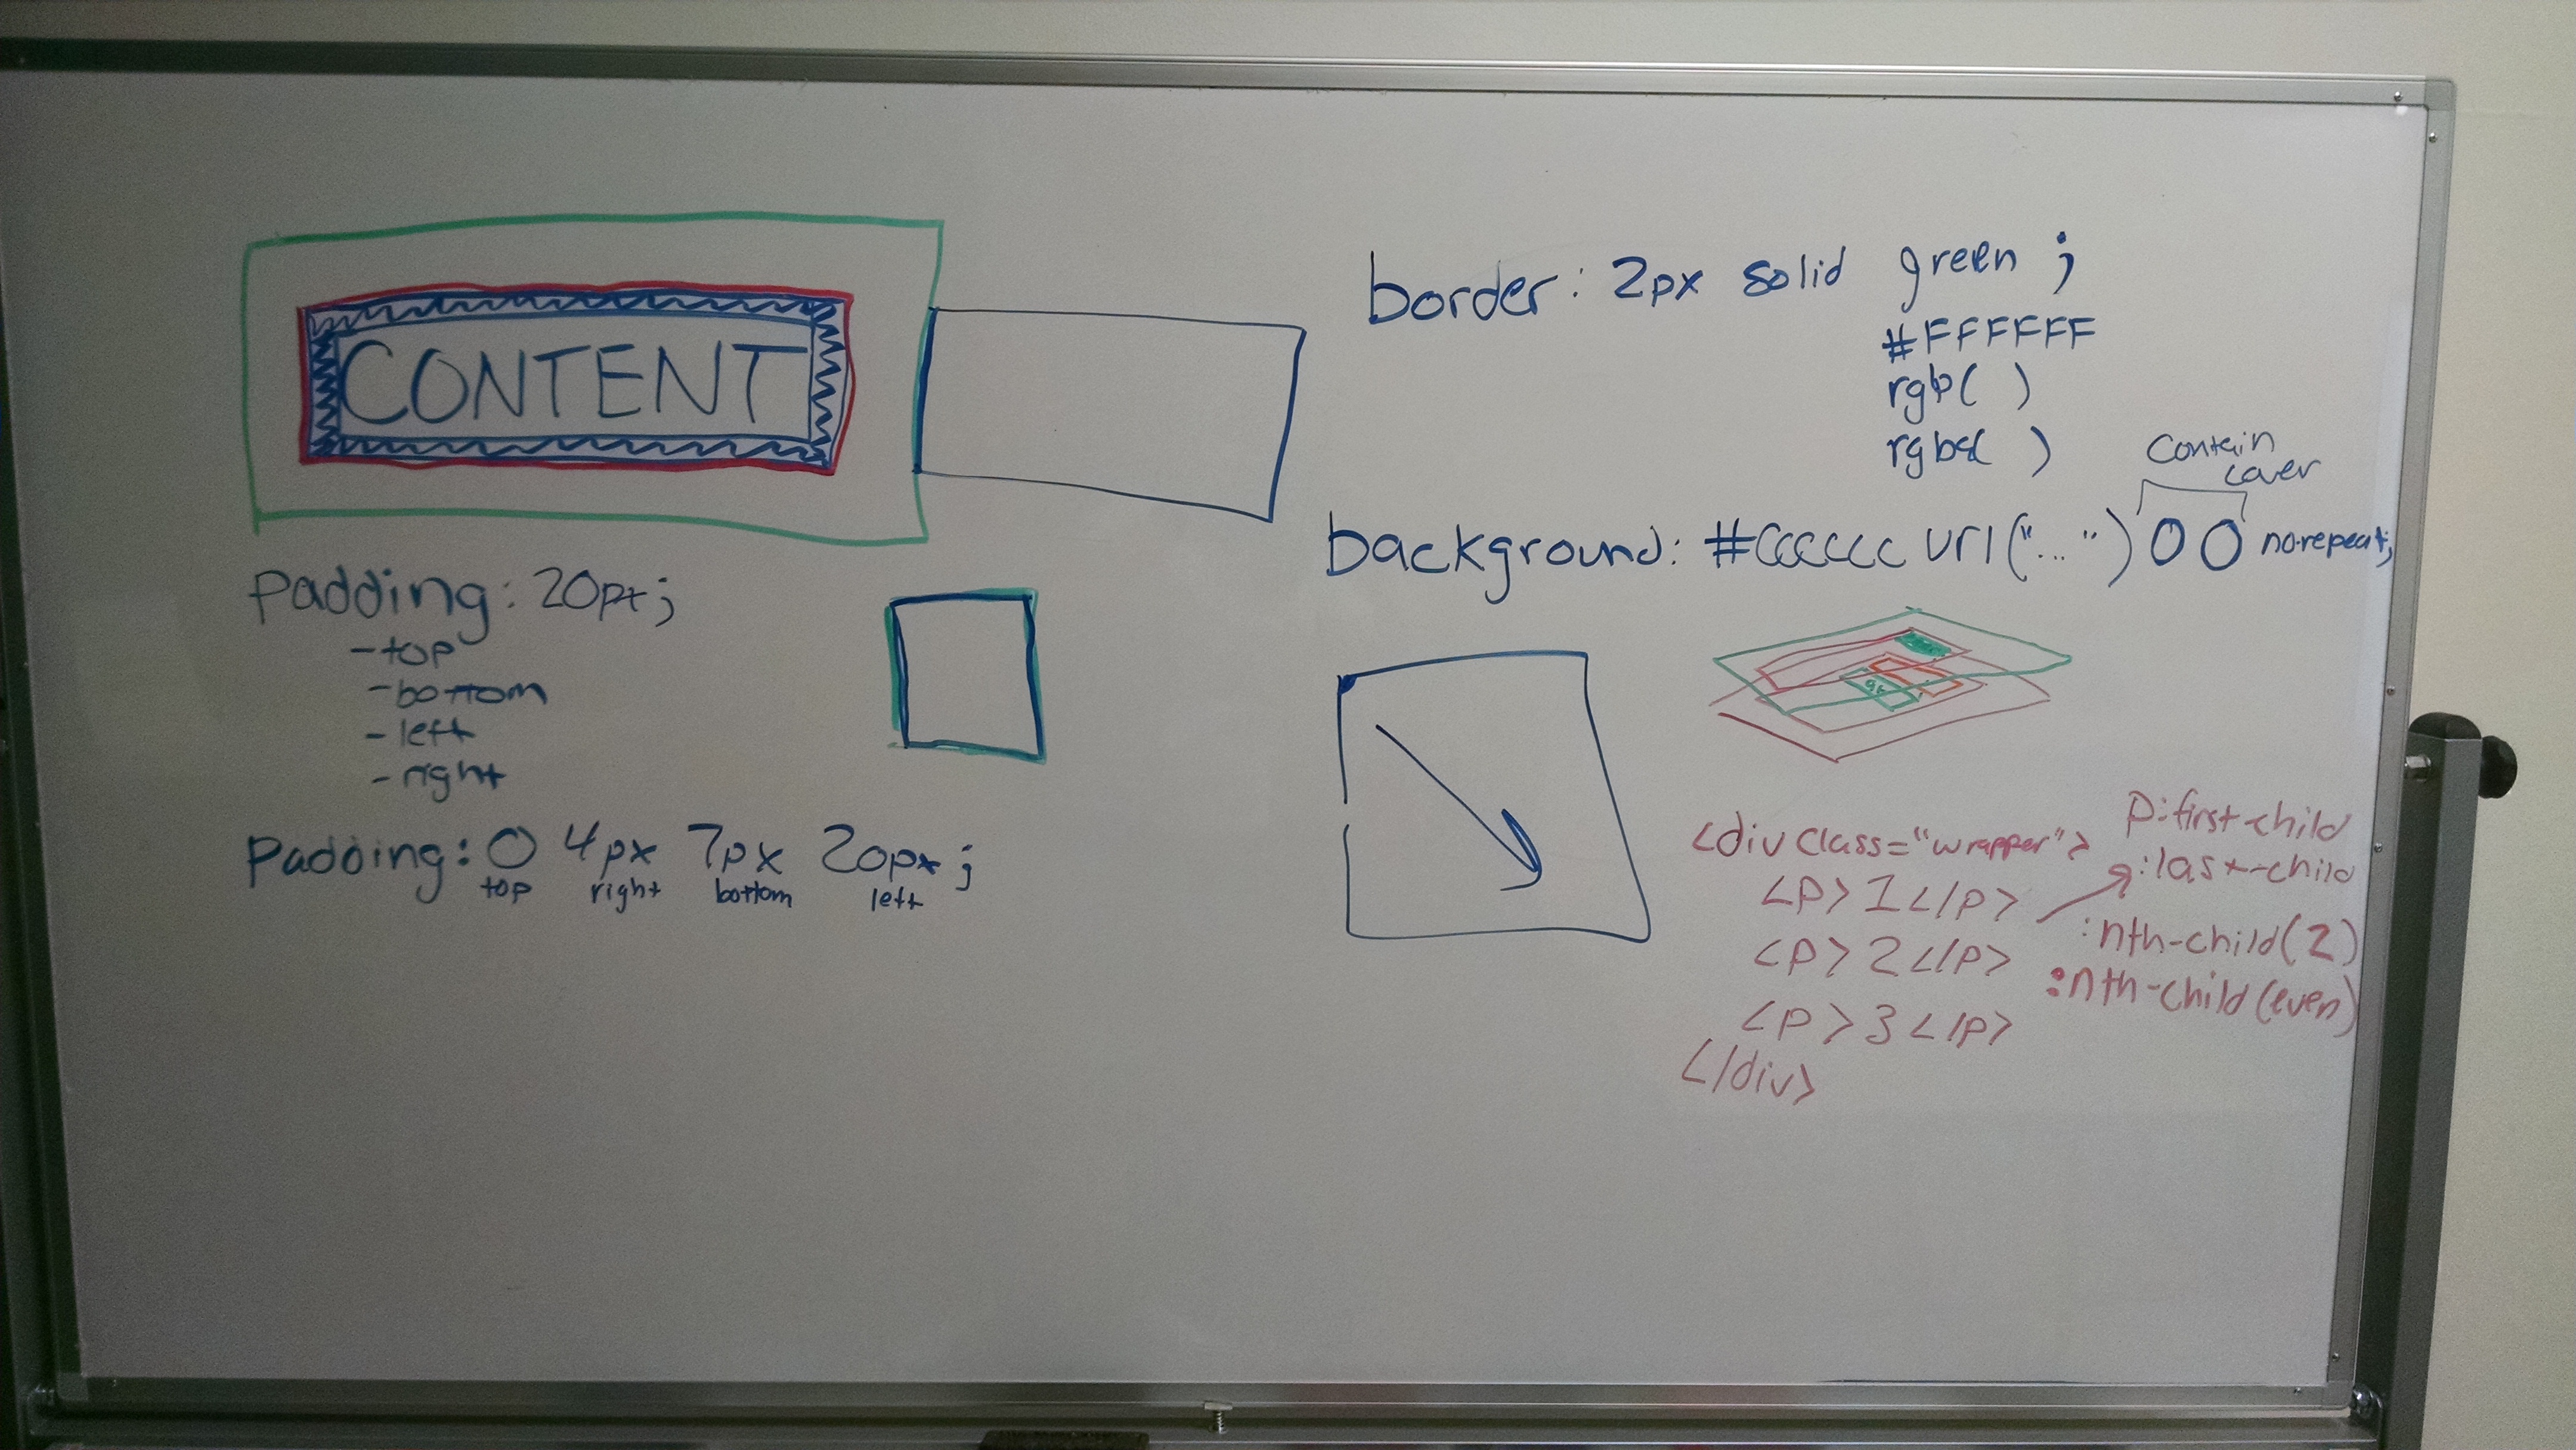 CONTENT
padding: 20px;
-top
-bottom
-left
-right
padding: 0 4px 7px 20px;
top right bottom left
border: 2px solid green ;
#FFFFFF
rgb( )
rgba( )
contain
cover
background: #CCCCCC url("...") 0 0 no-repeat;
<div class="wrapper">
<p>1</p>
<p>2</p>
<p>3</p>
</div>
p:first-child
:last-child
:nth-child(2)
:nth-child(even)